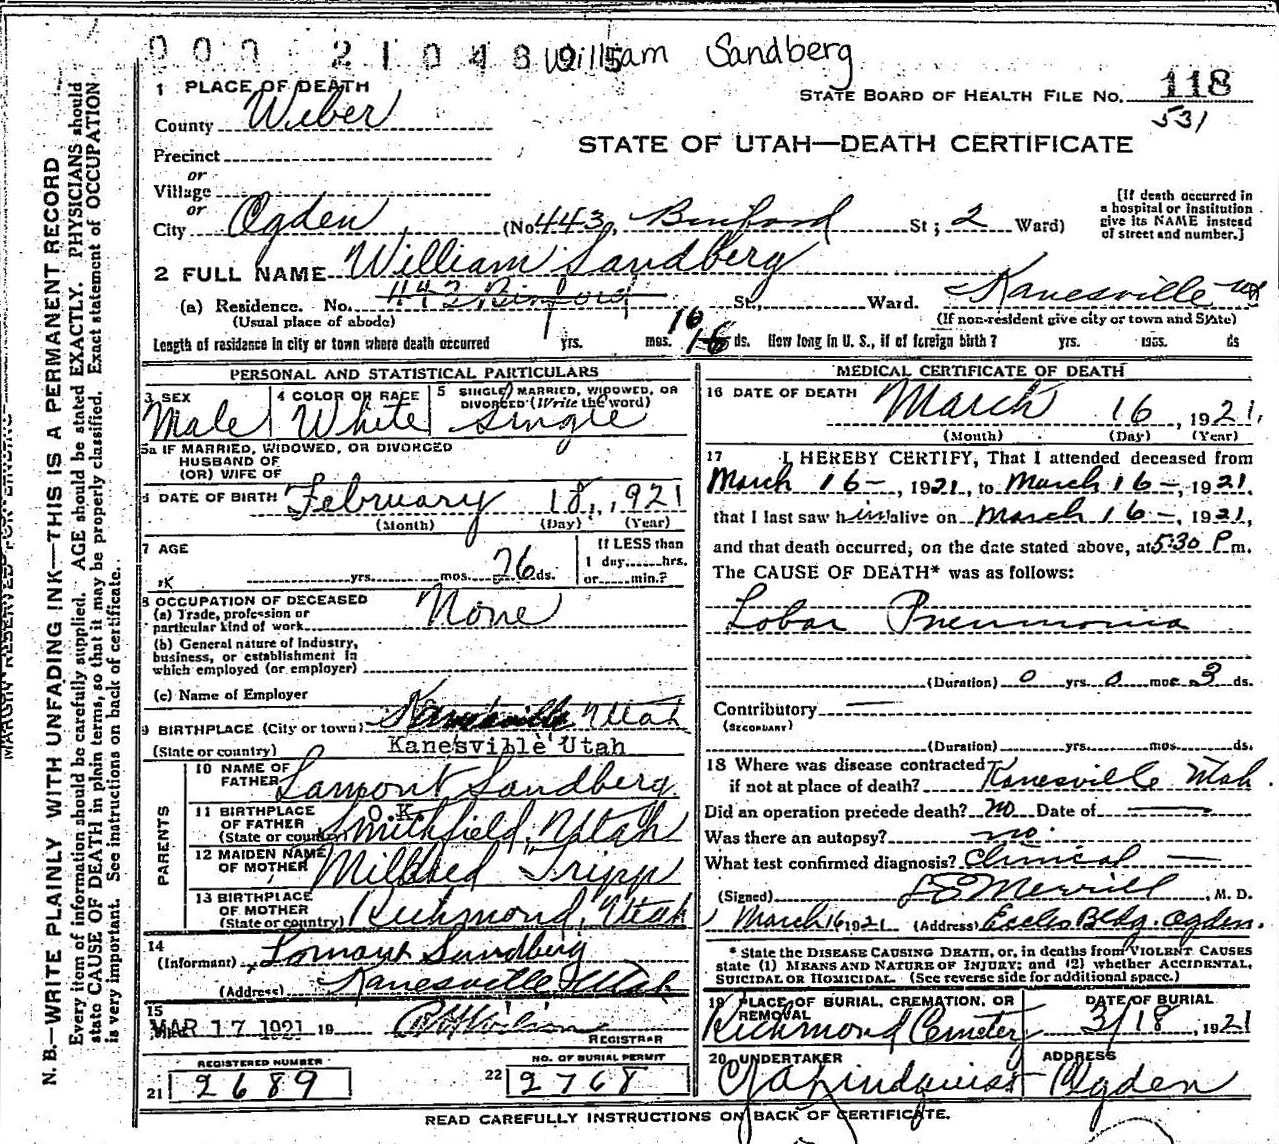 000 2104895 William Sandberg
1 PLACE OF DEATH
STATE BOARD OF HEALTH FILE NO. 118
531
County Weber
STATE OF UTAH—DEATH CERTIFICATE
Precinct
or
Village
or
City Ogden (No 443, Binford St; 2 Ward)
[If death occurred in
a hospital or institution
give its NAME instead
of street and number.]
2 FULL NAME William Sandberg
(a) Residence. No. 443 Binford St., Ward. Kanesville
(Usual place of abode) (If non-resident give city or town and State)
Length of residence in city or town where death occurred yrs. mos. 16 ds. How long in U. S., if of foreign birth? yrs. mos. ds
PERSONAL AND STATISTICAL PARTICULARS
3 SEX 4 COLOR OR RACE 5 SINGLE, MARRIED, WIDOWED, OR
DIVORCED (Write the word)
Male White Single
5a IF MARRIED, WIDOWED, OR DIVORCED
HUSBAND OF
(OR) WIFE OF
6 DATE OF BIRTH February 18, 1921
(Month) (Day) (Year)
7 AGE yrs. mos. 26 ds.
If LESS than
1 day......hrs.
or......min.?
8 OCCUPATION OF DECEASED
(a) Trade, profession or
particular kind of work None
(b) General nature of industry,
business, or establishment in
which employed (or employer)
(c) Name of Employer
9 BIRTHPLACE (City or town) Kanesville Utah
(State or country) Kanesville Utah
PARENTS
10 NAME OF
FATHER Lamont Sandberg
11 BIRTHPLACE
OF FATHER O.K.
(State or country) Smithfield, Utah
12 MAIDEN NAME
OF MOTHER Mildred Tripp
13 BIRTHPLACE
OF MOTHER
(State or country) Richmond, Utah
14
(Informant) Lamont Sandberg
(Address) Kanesville Utah
15
MAR 17 1921 19
REGISTRAR
REGISTERED NUMBER NO. OF BURIAL PERMIT
21 2689 22 2768
MEDICAL CERTIFICATE OF DEATH
16 DATE OF DEATH March 16, 1921,
(Month) (Day) (Year)
17 I HEREBY CERTIFY, That I attended deceased from
March 16-, 1921, to March 16-, 1921,
that I last saw him alive on March 16-, 1921,
and that death occurred, on the date stated above, at 5:30 P m.
The CAUSE OF DEATH* was as follows:
Lobar Pneumonia
(Duration) 0 yrs. 0 mos. 3 ds.
Contributory —
(SECONDARY)
(Duration) yrs. mos. ds.
18 Where was disease contracted
if not at place of death? Kanesville Utah
Did an operation precede death? No Date of —
Was there an autopsy? no.
What test confirmed diagnosis? Clinical —
(Signed) Merrill M. D.
March 16 1921 (Address) Eccles Bldg. Ogden.
* State the DISEASE CAUSING DEATH, or, in deaths from VIOLENT CAUSES
state (1) MEANS AND NATURE OF INJURY; and (2) whether ACCIDENTAL,
SUICIDAL OR HOMICIDAL. (See reverse side for additional space.)
19 PLACE OF BURIAL, CREMATION, OR
REMOVAL DATE OF BURIAL
Richmond Cemetery 3/18, 1921
20 UNDERTAKER ADDRESS
Lindquist Ogden
READ CAREFULLY INSTRUCTIONS ON BACK OF CERTIFICATE.
MARGIN RESERVED FOR BINDING
N. B.—WRITE PLAINLY WITH UNFADING INK—THIS IS A PERMANENT RECORD
Every item of information should be carefully supplied. AGE should be stated EXACTLY. PHYSICIANS should
state CAUSE OF DEATH in plain terms, so that it may be properly classified. Exact statement of OCCUPATION
is very important. See instructions on back of certificate.